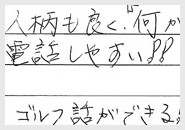 人柄も良く、何か
電話しやすい!!
ゴルフ話ができる!